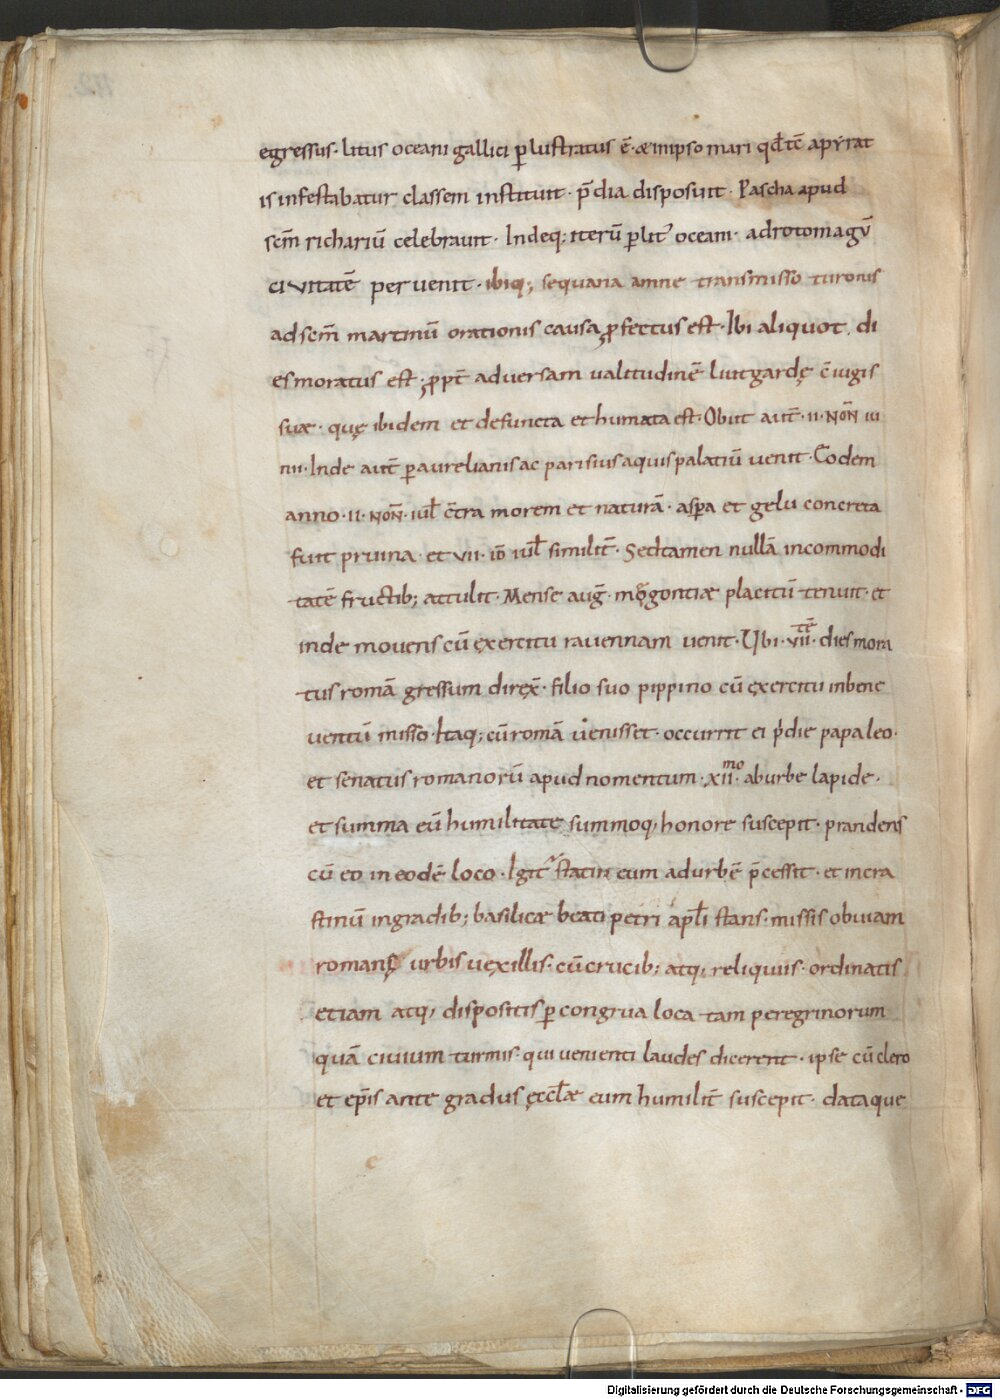 egressus· litus oceani gallici ꝑlustratus ē· & inipso mari qđ tc̄ apyrat
is infestabatur classem instituit· p̄dia disposuit· Pascha apud
scm̄ richariū celebrauit· Indeq; iterū ꝑ lit' oceani· adrotomagū
civitatē peruenit· ibiq; sequana amne transmisso turonis
adscm̄ martinū orationis causa ꝓfectus est· Ibi aliquot di
es moratus est· ꝓpt̄ adversam ualitudinē liutgardę c̄iugis
suae· quę ibidem et defuncta et humata est· Obiit aut̄· ii· NOÑ iu
nii· Inde aut̄ ꝑ aurelianis ac parisius aquispalatiū uenit· Eodem
anno· ii· NOÑ· iul̄ c̄tra morem et naturā· asꝑa et gelu concreta
fuit pruina· et vii· id̄ iul̄ similit̄· Sed tamen nullā incommodi
tatē fructib; attulit· Mense auḡ· mogontiae placitū tenuit· et
inde mouens cū exercitu rauennam uenit· Ubi· vii tē· dies mora
tus romā gressum direx̄· filio suo pippino cū exercitu inbene
uentū misso· Itaq; cū romā uenisset· occurrit ei p'die papa leo·
et senatus romanorū apud nomentum· xii mo· aburbe lapide·
et summa eū humilitate summoq; honore suscepit· prandens
cū eo in eodē loco· Igit' statin eum adurbē p̄cessit· et incra
stinū ingradib; basilicae beati petri apl̄i stans· missis obuiam
romanę urbis uexillis· cū crucib; atq; reliquiis· ordinatis
etiam atq; dispositis ꝑ congrua loca tam peregrinorum
quā ciuium turmis· qui uenienti laudes dicerent· ipse cū clero
et ep̄is ante gradus ęccl̄ae eum humilit̄ suscepit· dataque
Digitalisierung gefördert durch die Deutsche Forschungsgemeinschaft - DFG